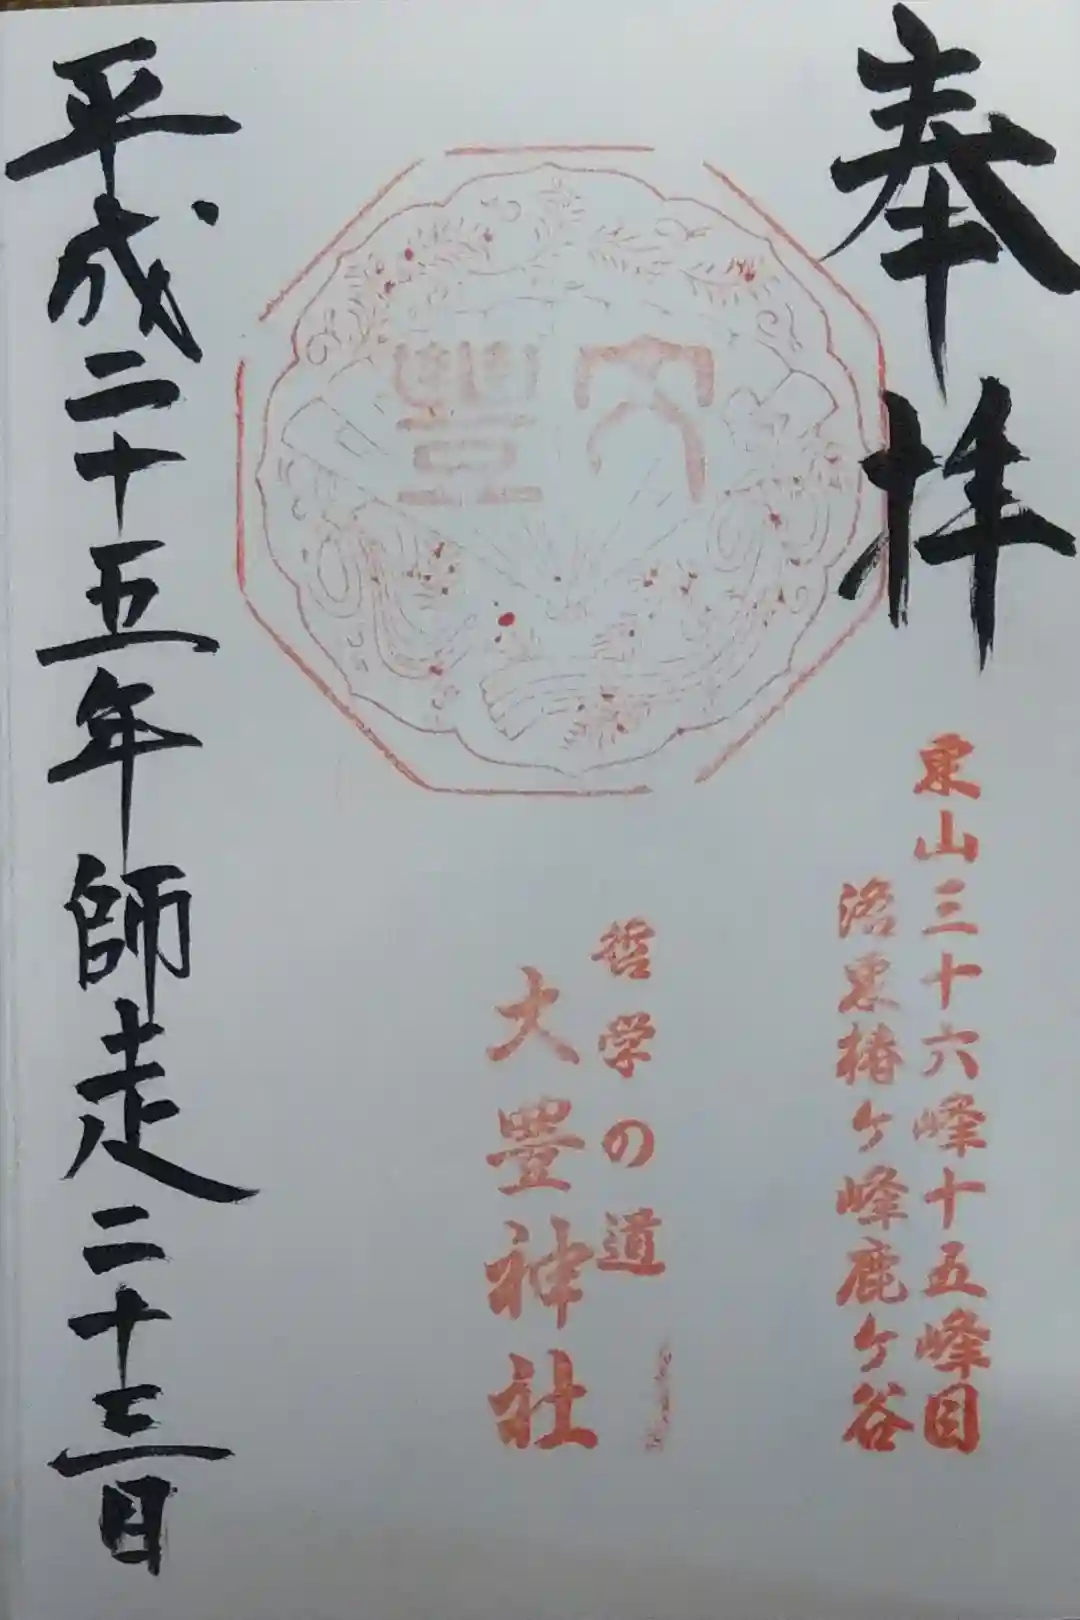 奉拝
東山三十六峰十五峰目
洛東椿ケ峰鹿ケ谷
大豊
哲学の道
大豊神社
平成二十五年師走二十三日